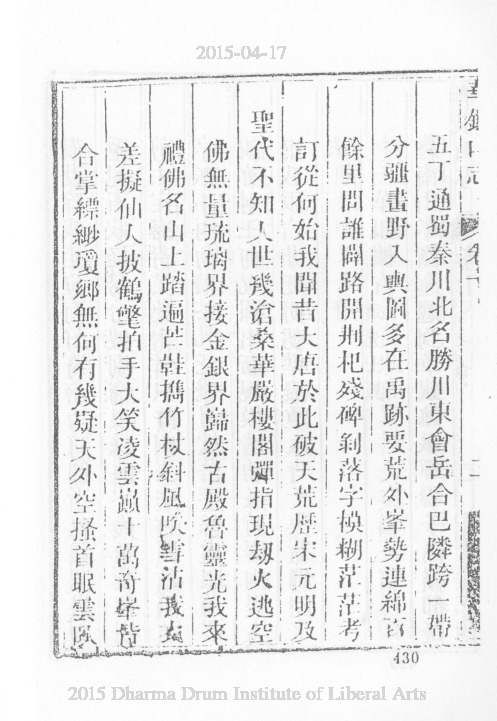 2015-04-17
五丁通蜀秦川北名勝川東會岳合巴隣跨一帶
分疆畫野入輿圖多在禹跡要荒外峯勢連綿百
餘里問誰闢路開荆杞殘碑剝落字模糊茫茫考
訂從何始我聞昔大唐於此破天荒歷宋元明及
聖代不知人世幾滄桑華嚴樓閣彈指現刼火逃空
佛無量琉璃界接金銀界巋然古殿魯靈光我來
禮佛名山上踏遍芒鞋攜竹杖斜風吹雪沾我衣
差擬仙人披鶴氅拍手大笑凌雲巔十萬奇峯皆
合掌縹緲瓊鄉無何有幾疑天外空搔首眠雲
430
2015 Dharma Drum Institute of Liberal Arts